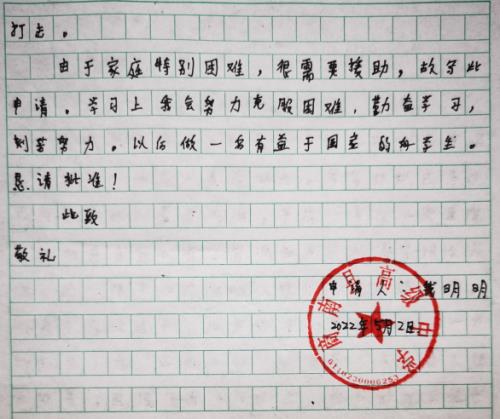 打击。
由于家庭特别困难，很需要援助，故予此
申请。学习上我会努力克服困难，勤益学习，
刻苦努力。以后做一名有益于国家的好学生。
恳请批准！
此致
敬礼
申请人：明明
2022年5月2日
商南县高级中学